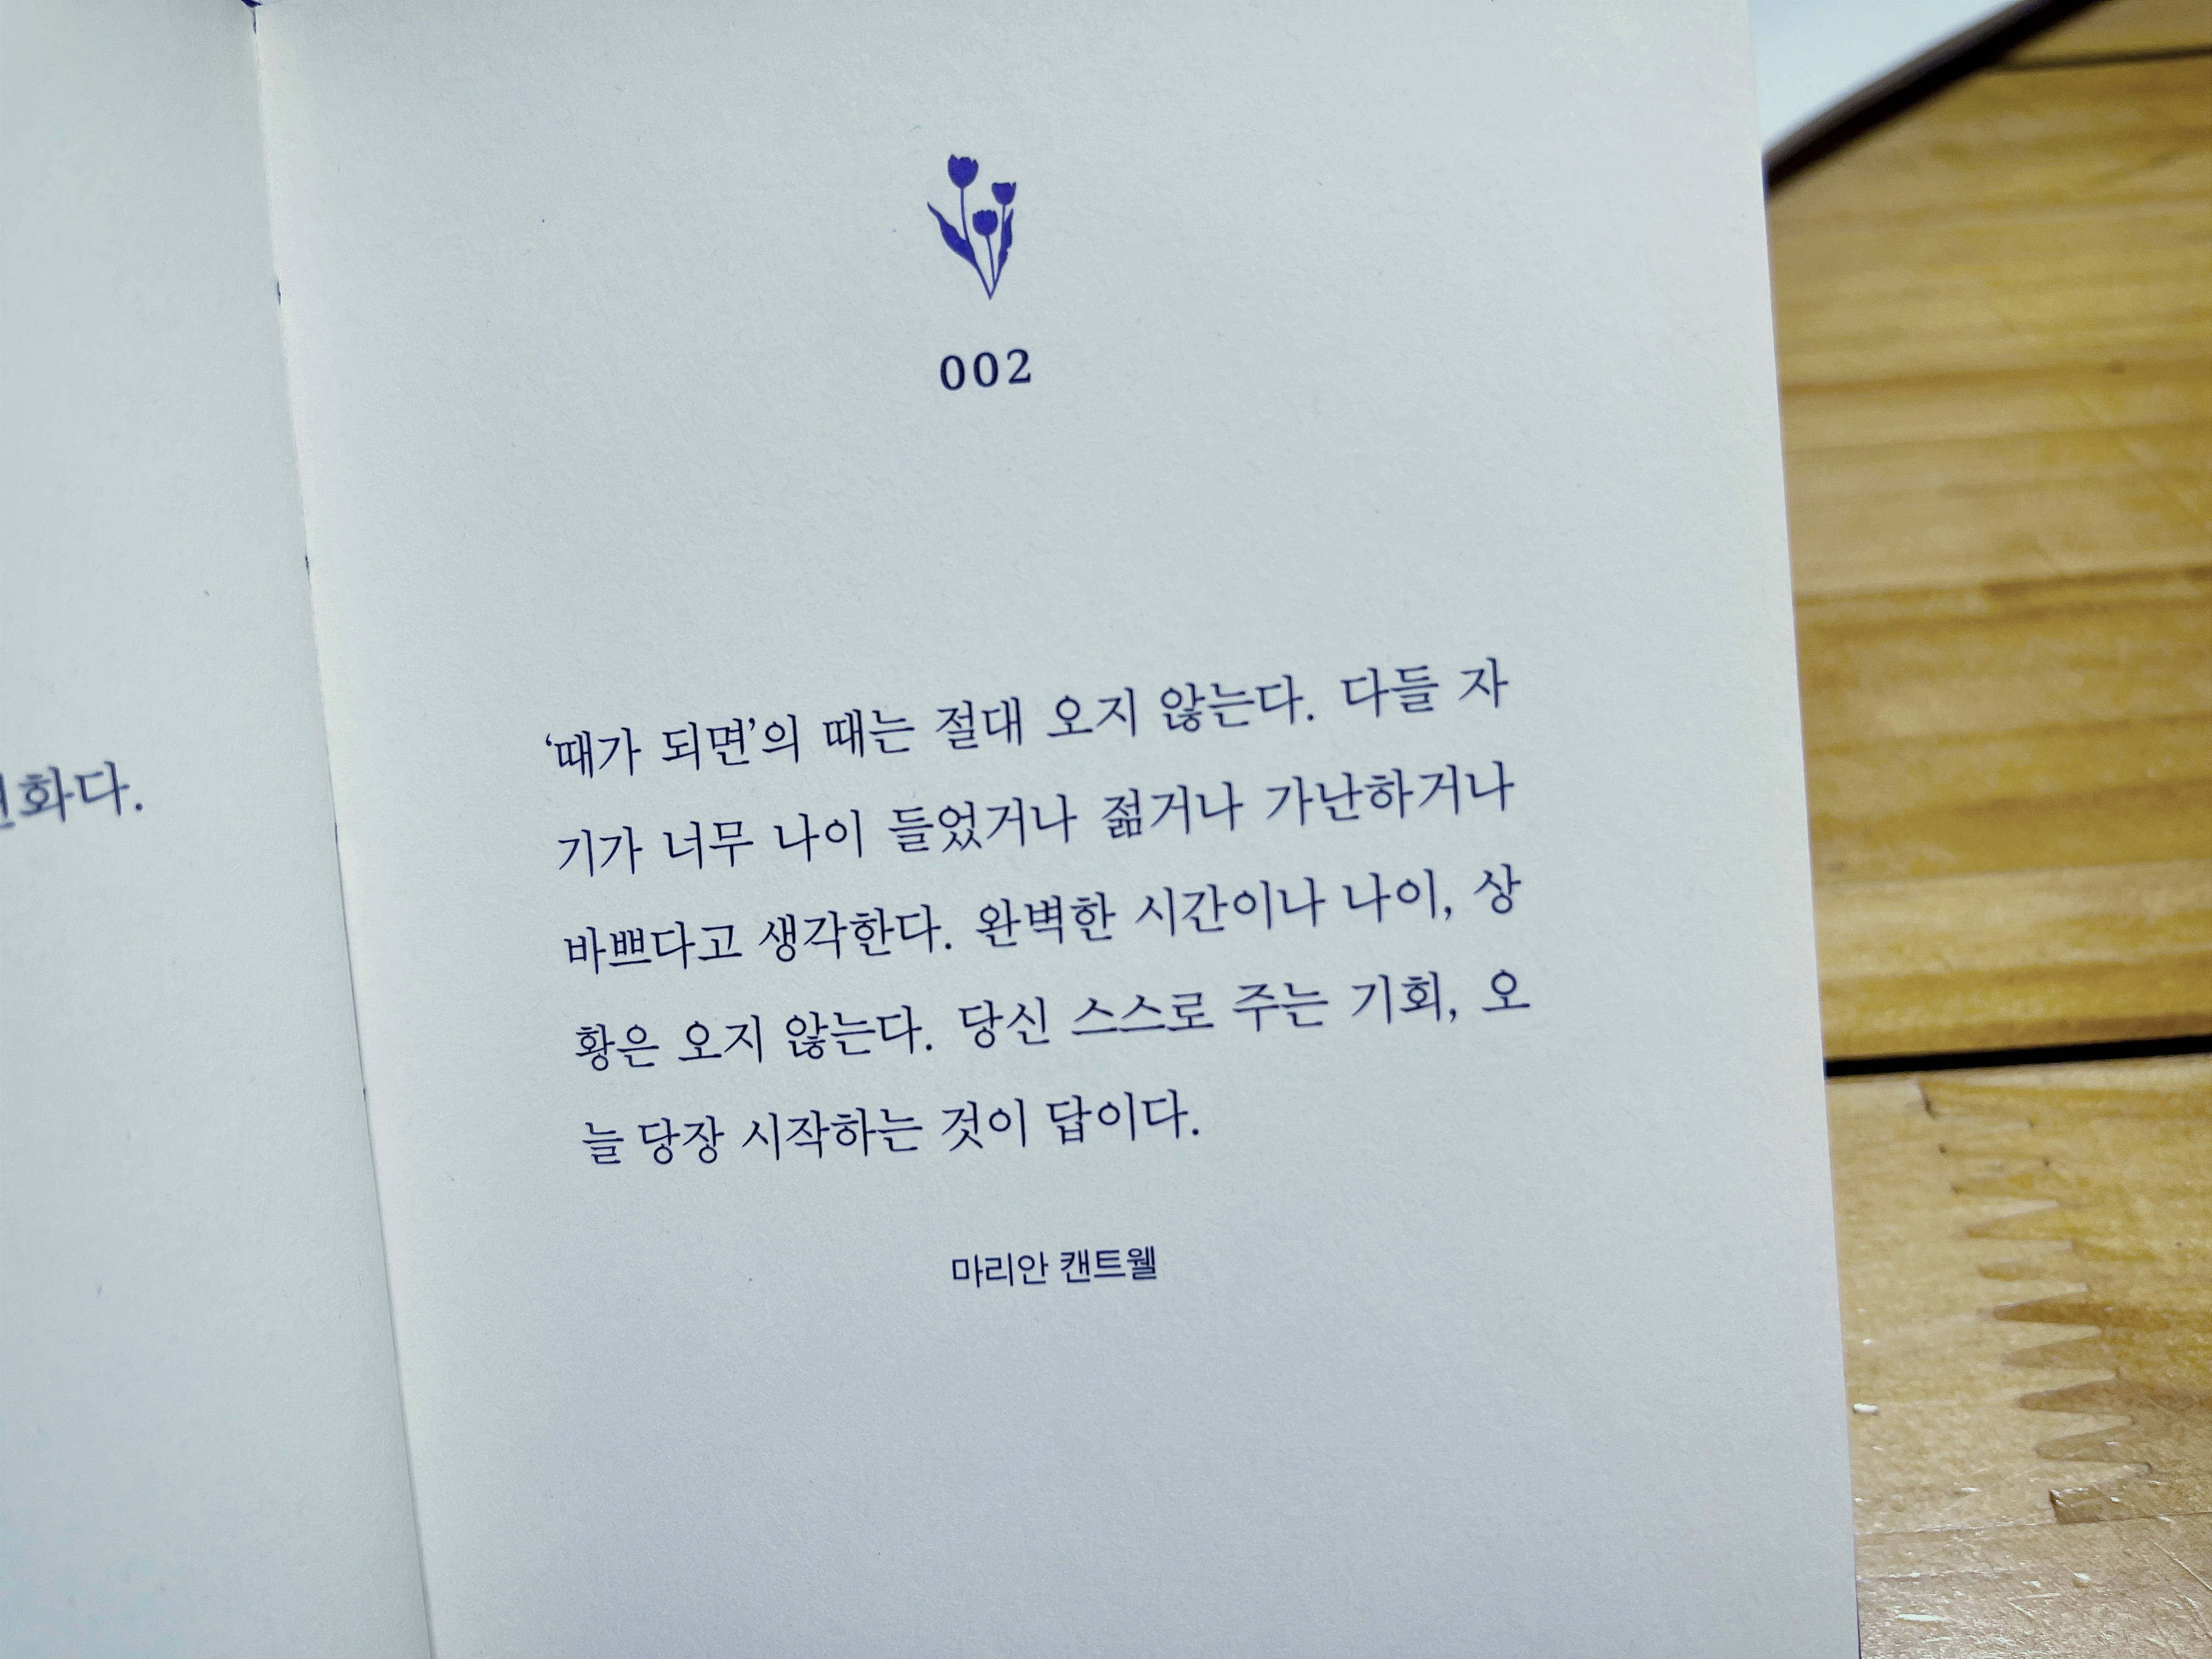 화다.
002
‘때가 되면’의 때는 절대 오지 않는다. 다들 자
기가 너무 나이 들었거나 젊거나 가난하거나
바쁘다고 생각한다. 완벽한 시간이나 나이, 상
황은 오지 않는다. 당신 스스로 주는 기회, 오
늘 당장 시작하는 것이 답이다.
마리안 캔트웰